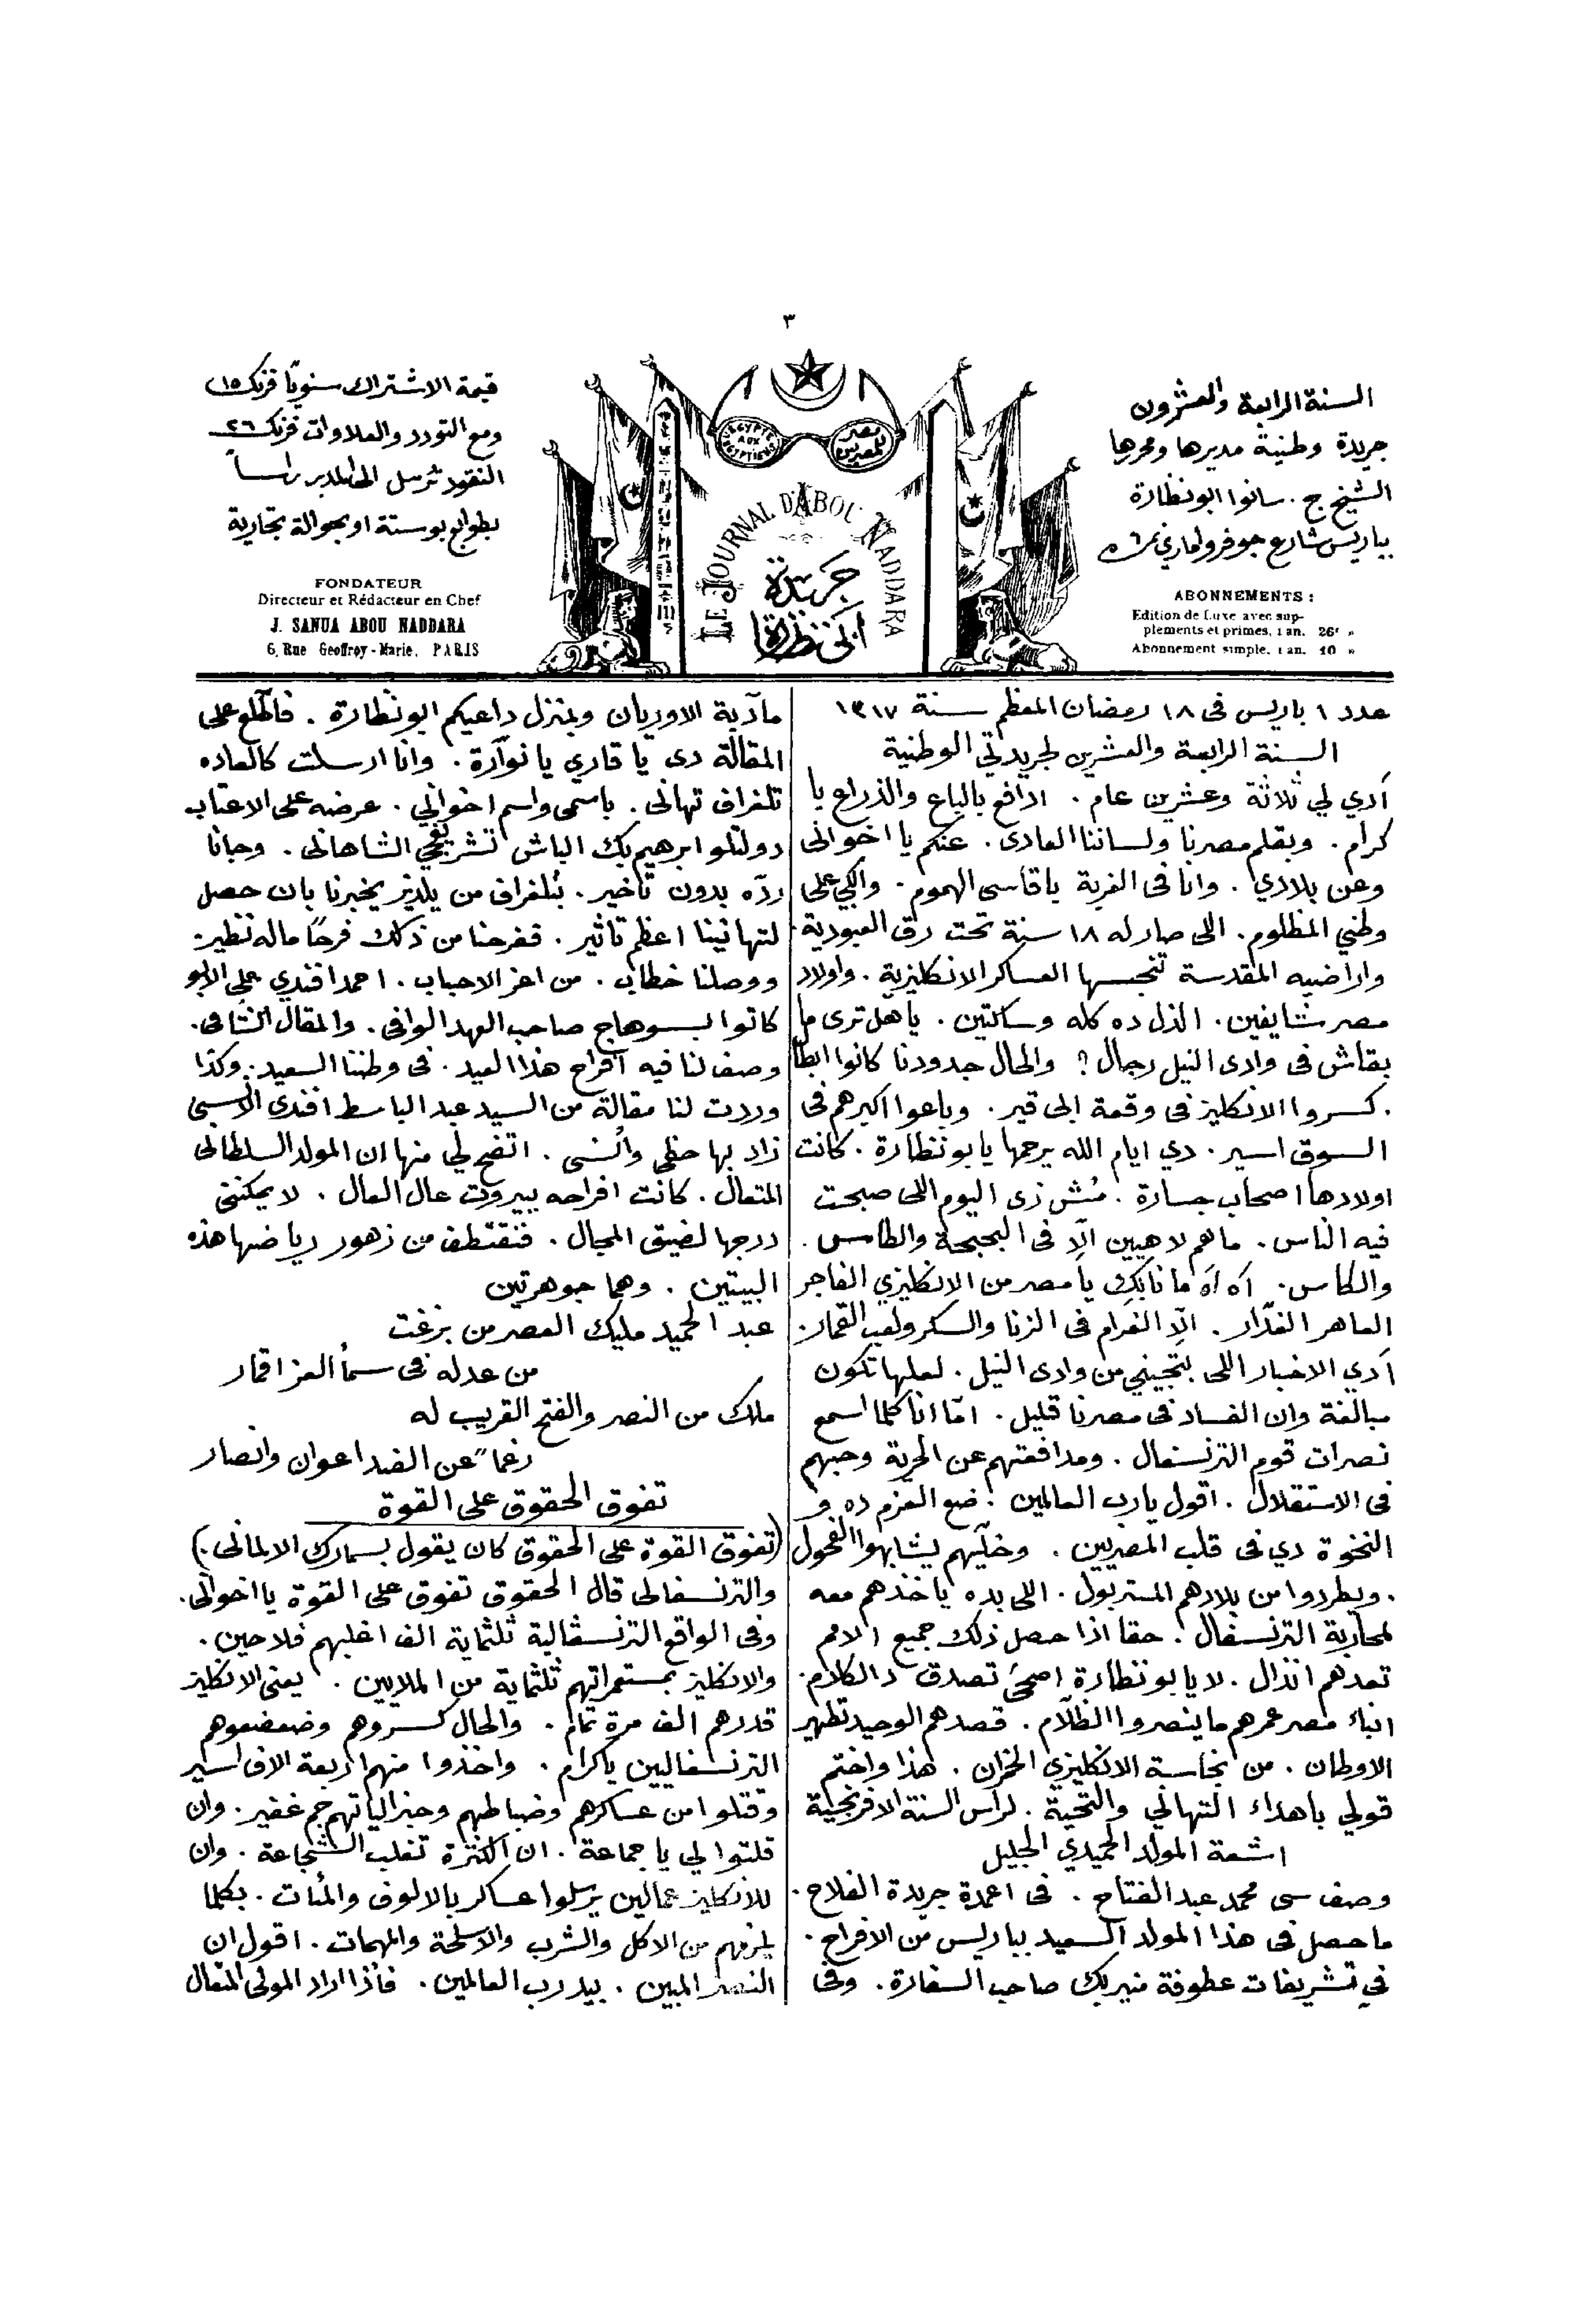 ٣
السنة الرابعة والعشرون
جريدة وطنية مديرها ومحررها
الشيخ ج. سانوا ابو نظارة
بباريس شارع جوفروا ماري
ABONNEMENTS :
Edition de Luxe avec sup-
plements et primes, 1 an. 26f »
Abonnement simple, 1 an. 10 »
LE JOURNAL D'ABOU NADDARA
جريدة
ابي نظارة
L'EGYPTE AUX EGYPTIENS
مصر للمصريين
قيمة الاشتراك سنويًا فرنك ١٥
ومع التودد والعلاوات فرنك ٢٦
النقود ترسل الى المدير راسًا
بطوابع بوستة او بحوالة تجارية
FONDATEUR
Directeur et Rédacteur en Chef
J. SANUA ABOU NADDARA
6, Rue Geoffroy-Marie, PARIS
عدد ١ باريس فى ١٨ رمضان المعظم سنة ١٣١٧
السنة الرابعة والعشرين لجريدتي الوطنية
آدي لي ثلاثة وعشرين عام . ادافع بالباع والذراع يا
كرام . وبقلم مصرنا ولساننا العادى . عنكم يا اخوانى
وعن بلادي . وانا فى الغربة باقاسى الهموم . وابكي على
وطني المظلوم . اللى صار له ١٨ سنة تحت رق العبودية .
واراضيه المقدسة تنجسها العساكر الانكليزية . واولاد
مصر شايفين . الذل ده كله وساكتين . يا هل ترى ما
بقاش فى وادى النيل رجال ؟ والحال جدودنا كانوا ابطال
. كسروا الانكليز فى وقعة ابى قير . وباعوا اكبرهم فى
السوق اسير . دي ايام الله يرحمها يا بو نظارة . كانت
اولادها اصحاب جسارة . مُش زى اليوم اللى صبحت
فيه الناس . ما هم لاهيين الّا فى البحبحة والطاس .
والكاس . آه آه ما نابكِ يا مصر من الانكليزي الفاجر
العاهر الغدّار . الّا الغرام فى الزنا والسكر ولعب القمار .
آدي الاخبار اللى بتجيني من وادى النيل . لعلها تكون
مبالغة وان الفساد فى مصرنا قليل . امّا انا كلما اسمع
نصرات قوم الترنسفال . ومدافعتهم عن الحرية وحبهم
فى الاستقلال . اقول يا رب العالمين . ضع العزم ده و
النخوة دي فى قلب المصريين . وخلّيهم يشابهوا الفحول
. ويطردوا من بلادهم المستر بول . اللى بده ياخذهم معه
لمحاربة الترنسفال . حقا اذا حصل ذلك جميع الامم
تعدهم انذال . لا يا بو نظارة اصحىَ تصدق دالكلام .
ابناء مصر عمرهم ما ينصروا الظلّام . قصدهم الوحيد تطهير
الاوطان . من نجاسة الانكليزي الخزان . هذا واختم
قولي باهداء التهاني والتحية . لراس السنة الافرنجية
اشعة المولد الحميدي الجليل
وصف سى محمد عبد الفتاح . فى اعمدة جريدة الفلاح .
ما حصل فى هذا المولد السعيد بباريس من الافراح .
فى تشريفات عطوفة منير بك صاحب السفارة . وفى
مآدبة الاوريان وبمنزل داعيكم ابو نظارة . فاطّلع على
المقالة دى يا قاري يا نوّارة . وانا ارسلت كالعاده
تلغراف تهانى . باسمى واسم اخواني . عرضه على الاعتاب
دولتلو ابرهيم بك الباش تشريفجي الشاهانى . وجانا
ردّه بدون تاخير . بتلغراف من يلدز يخبرنا بان حصل
لتهانينا اعظم تاثير . ففرحنا من ذلك فرحًا ماله نظير .
ووصلنا خطاب . من اعز الاحباب . احمد افندي على الابو
كاتوا لسوهاج صاحب العهد الوافى . والمقال الشافى .
وصف لنا فيه افراح هذا العيد . فى وطننا السعيد . وكذا
وردت لنا مقالة من السيد عبد الباسط افندى الانسى
زاد بها حظى وانسى . اتضح لي منها ان المولد السلطانى
المتعال . كانت افراحه ببيروت عال العال . لا يمكنني
درجها لضيق المجال . فنقتطف من زهور رياضها هذه
البيتين . وهما جوهرتين
عبد الحميد مليك العصر من بزغت
من عدله فى سمأ العز اقمار
ملك من النصر والفتح القريب له
رغما عن الضد اعوان وانصار
تفوق الحقوق على القوة
(تفوق القوة على الحقوق كان يقول بسمارك الالمانى .)
والترنسفالى قال الحقوق تفوق على القوة يا اخواني .
وفى الواقع الترنسفالية ثلثماية الف اغلبهم فلاحين .
والانكليز بمستعمراتهم ثلثماية من الملايين . يعنى الانكليز
قدرهم الف مرة تمام . والحال كسّروهم وضعضعوهم
الترنسفاليين يا كرام . واخذوا منهم اربعة الاف اسير
وقتلوا من عساكرهم وضباطهم وجنرالياتهم جم غفير . وان
قلتوا لي يا جماعة . ان الكثرة تغلب الشجاعة . وان
للانكليز عمالين يرسلوا عساكر بالالوف والمئات . بكلما
يلزمهم من الاكل والشرب والاسلحة والمهمات . اقول ان
النصر المبين . بيد رب العالمين . فاذا اراد المولى المتعال